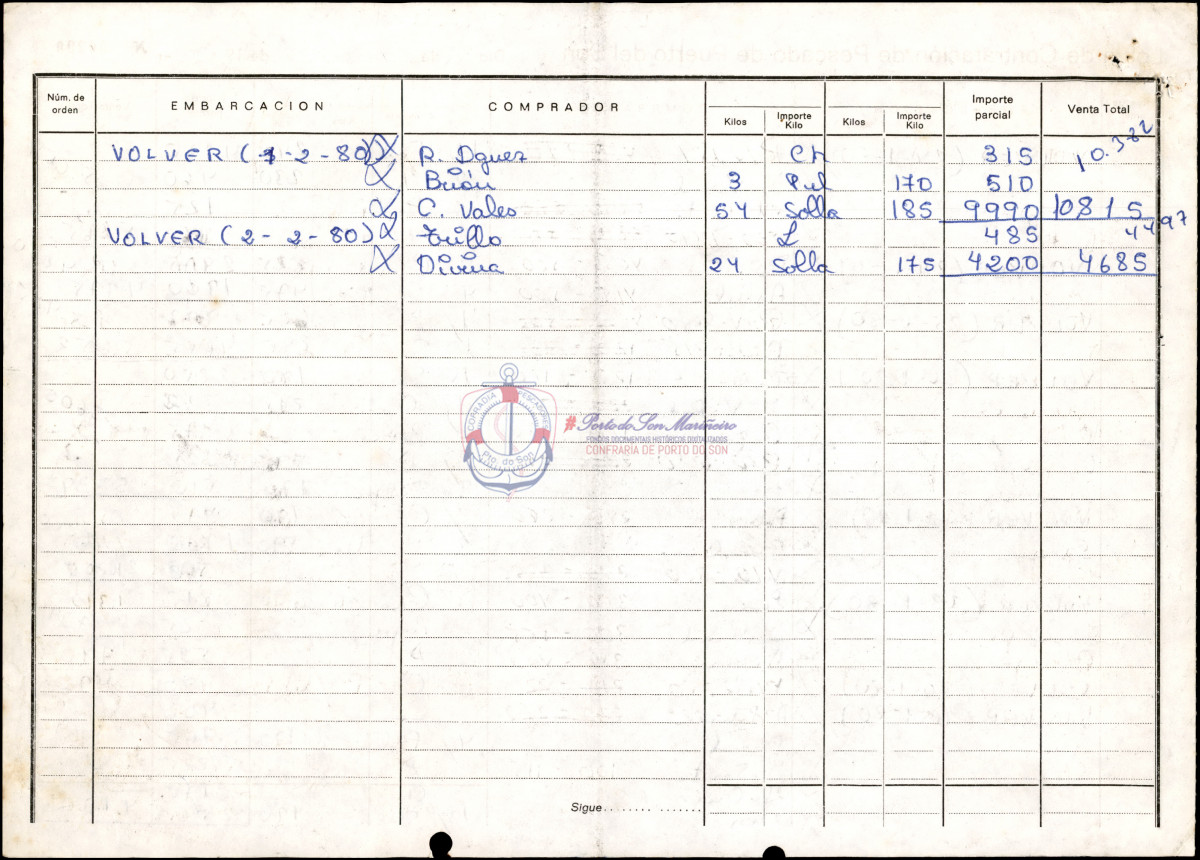 Núm. de orden EMBARCACION COMPRADOR Kilos Importe Kilo Kilos Importe Kilo Importe parcial Venta Total
VOLVER (1-2-80) R. Dguez Ch 315 10.382
Brión 3 Pul 170 510
C. Vales 54 Solla 185 9990 10815
VOLVER (2-2-80) Trillo L 485 4497
Divina 24 Solla 175 4200 4685
COFRADIA PESCADORES
Pto. do Son
#Porto do Son Mariñeiro
FONDOS DOCUMENTAIS HISTÓRICOS DIXITALIZADOS
CONFRARIA DE PORTO DO SON
Sigue........ .......